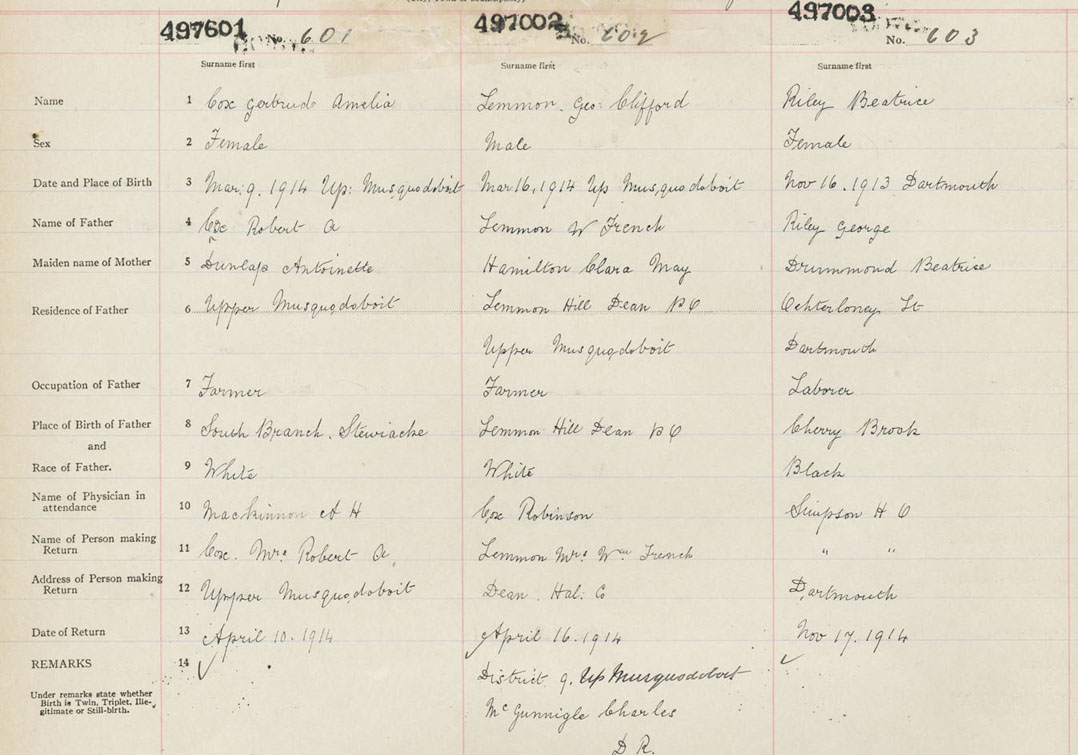 497601
No. 601
497002
No. 602
497003
No. 603
Surname first
Surname first
Surname first
Name
1 Cox Gertrude Amelia
Lemmon, Geo: Clifford
Riley Beatrice
Sex
2 Female
Male
Female
Date and Place of Birth
3 Mar: 9. 1914 Up: Musquodoboit
Mar 16, 1914 Up Musquodoboit
Nov 16. 1913 Dartmouth
Name of Father
4 Cox Robert A
Lemmon W French
Riley George
Maiden name of Mother
5 Dunlap Antoinette
Hamilton Clara May
Drummond Beatrice
Residence of Father
6 Upper Musquodoboit
Lemmon Hill Dean P O
Upper Musquodoboit
Ochterloney St
Dartmouth
Occupation of Father
7 Farmer
Farmer
Laborer
Place of Birth of Father
8 South Branch. Stewiacke
Lemmon Hill Dean P O
Cherry Brook
and
Race of Father.
9 White
White
Black
Name of Physician in
attendance
10 MacKinnon A H
Cox Robinson
Simpson H O
Name of Person making
Return
11 Cox. Mrs Robert A.
Lemmon Mrs Wm French
" "
Address of Person making
Return
12 Upper Musquodoboit
Dean. Hal: Co
Dartmouth
Date of Return
13 April 10. 1914
April 16. 1914
Nov 17. 1914
REMARKS
14
Under remarks state whether
Birth is Twin, Triplet, Ille-
gitimate or Still-birth.
District 9. Up Musquodoboit
McGunnigle Charles
D R.